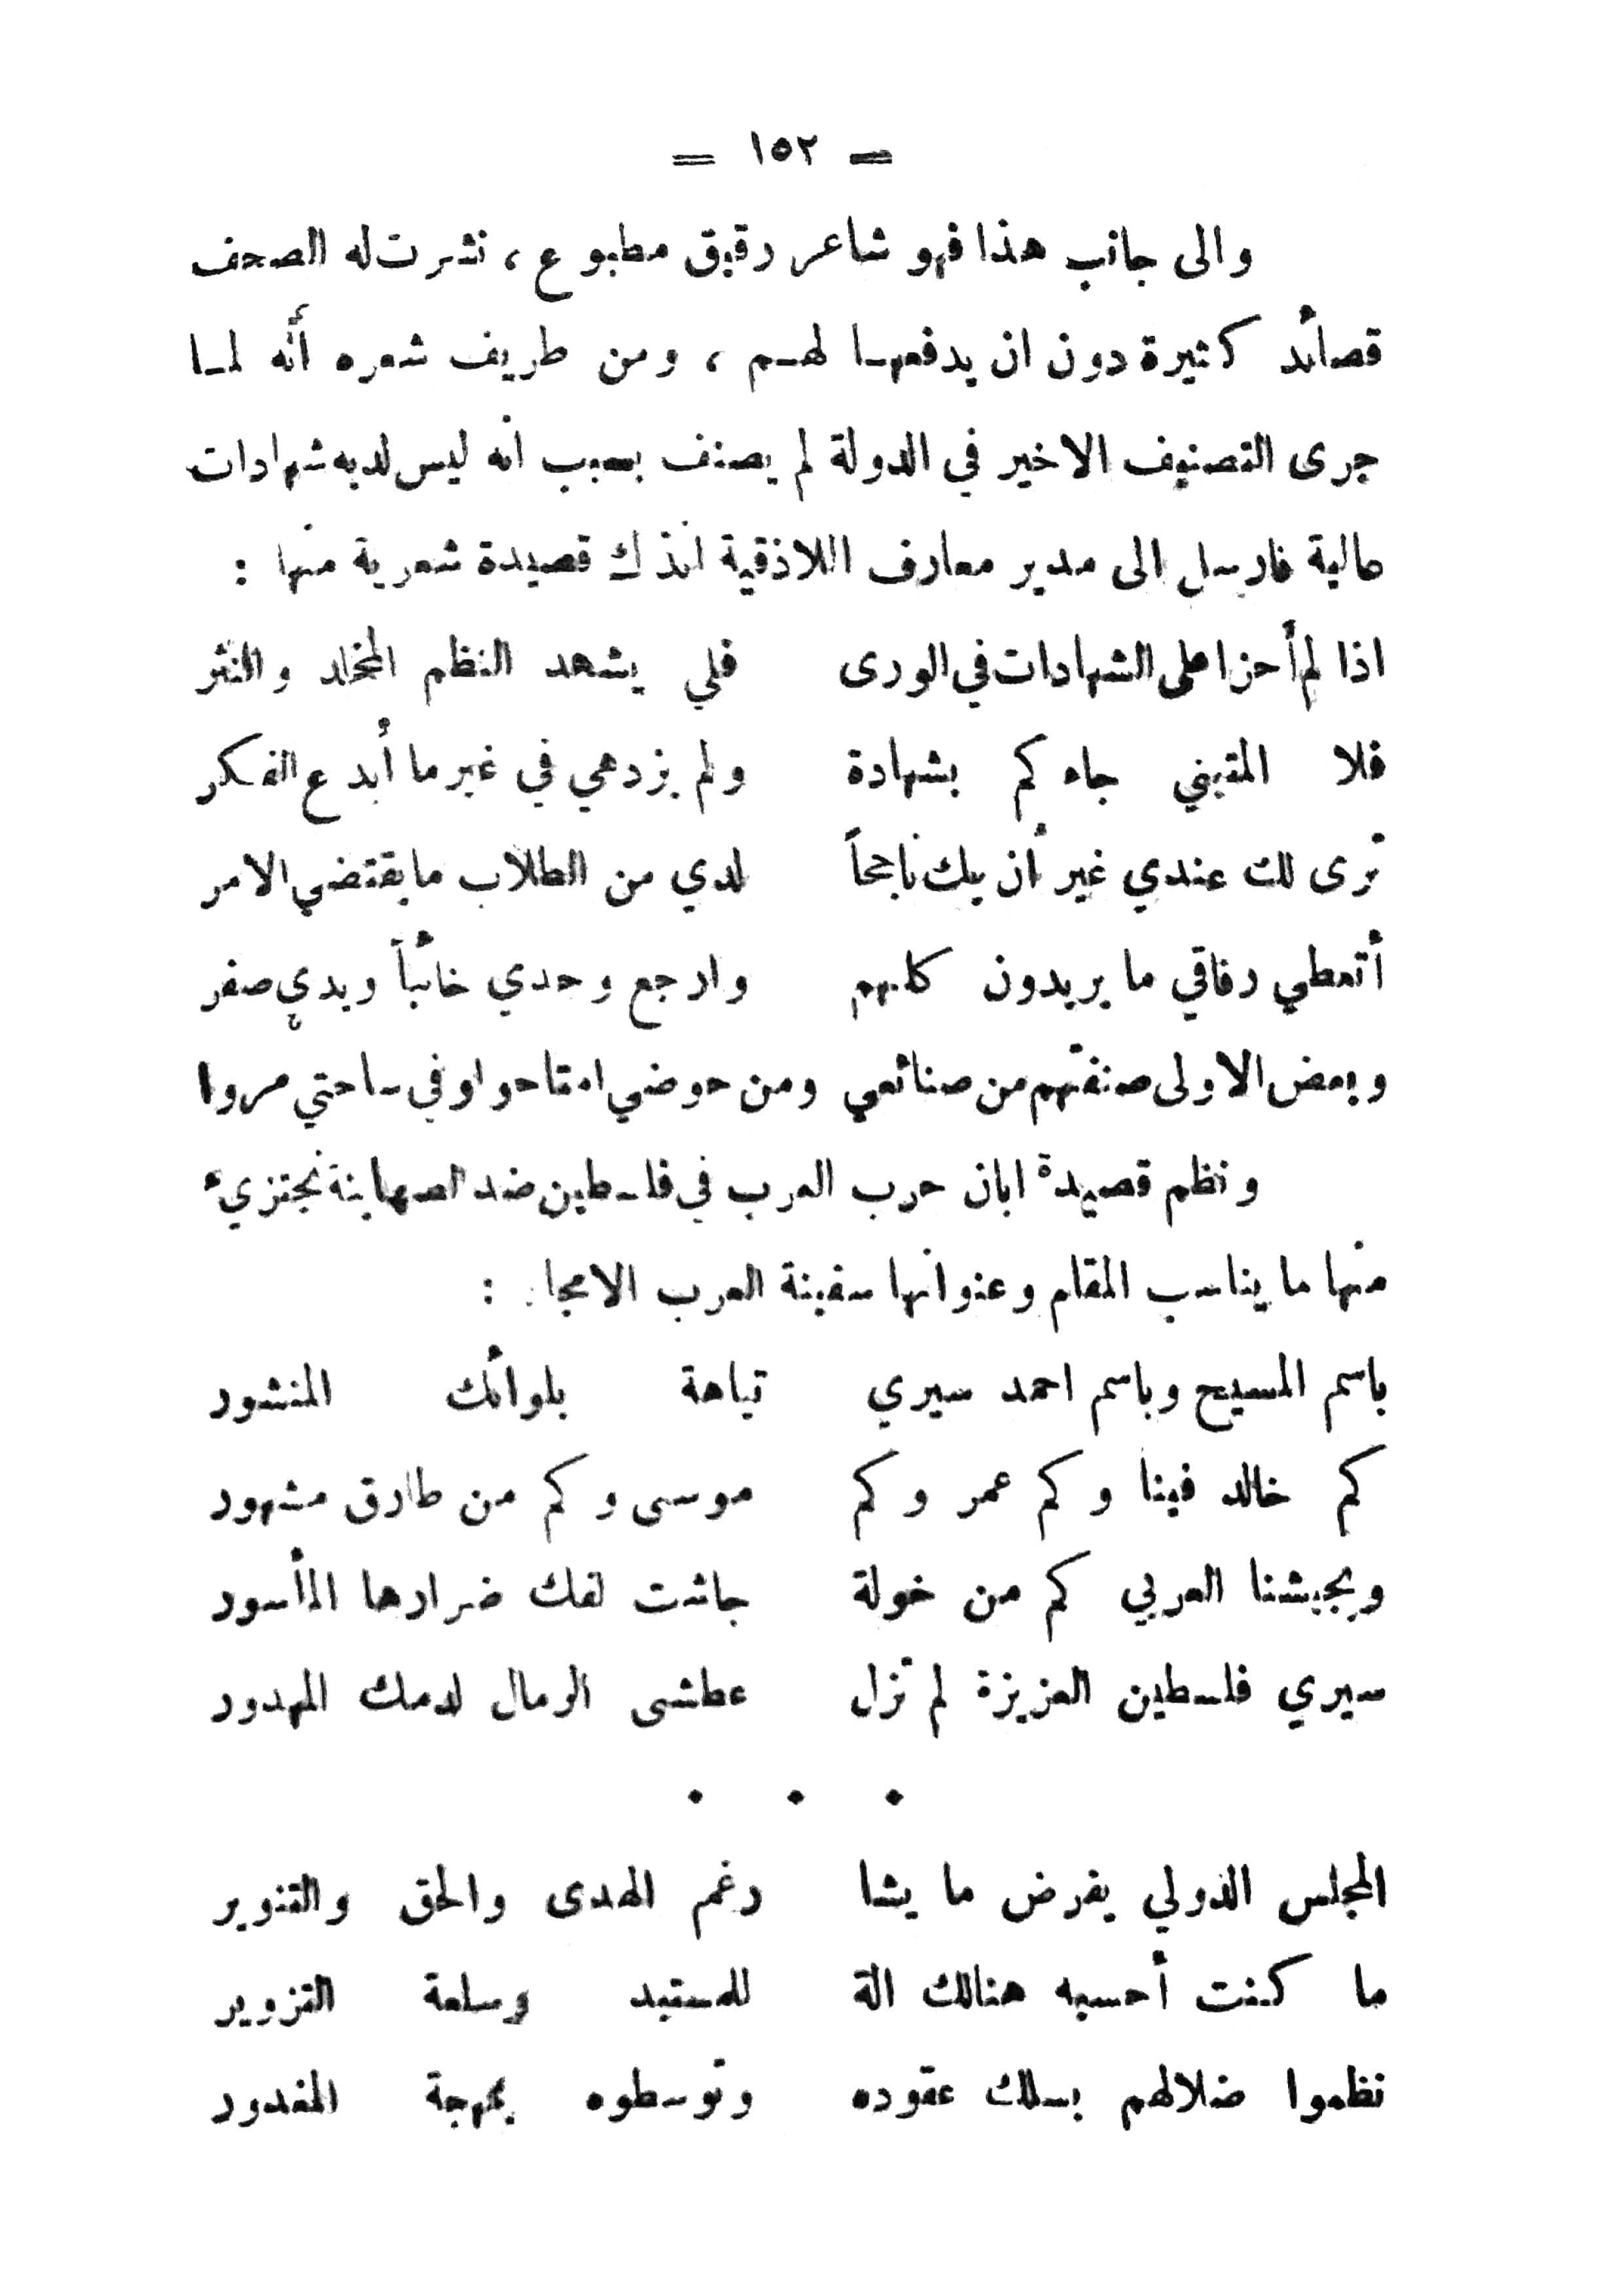 = ١٥٢ =
والى جانب هذا فهو شاعر رقيق مطبوع ، نشرت له الصحف
قصائد كثيرة دون ان يدفعهـا لهـم ، ومن طريف شعره أنه لمـا
جرى التصنيف الاخير في الدولة لم يصنف بسبب انه ليس لديه شهادات
عالية فارسل الى مدير معارف اللاذقية انذك قصيدة شعرية منها :
اذا لم أحز اعلى الشهادات في الورى فلي يشهد النظم المخلد والنثر
فلا المتنبي جاءكم بشهادة ولم يزدهي في غير ما أبدع الفكر
ترى لك عندي غير أن يك ناجحاً لدي من الطلاب ما يقتضي الامر
أتعطي رفاقي ما يريدون كلهم وارجع وحدي خائباً ويدي صفر
وبعض الاولى صنفتهم من صنائعي ومن حوضي امتاحوا وفي ساحتي مروا
ونظم قصيدة ابان حرب العرب في فلسطين ضد الصهاينة نجتزيء
منها ما يناسب المقام وعنوانها سفينة العرب الامجا :
باسم المسيح وباسم احمد سيري تياهة بلوائك المنشود
كم خالد فينا وكم عمر وكم موسى وكم من طارق مشهود
وبجيشنا العربي كم من خولة جاشت لفك ضرارها المأسور
سيري فلسطين العزيزة لم تزل عطشى الرمال لدمك المهدور
• • •
المجلس الدولي يفرض ما يشا رغم الهدى والحق والتنوير
ما كنت أحسبه هنالك الة للمستبد وسلعة التزوير
نظموا ضلالهم بسلك عقوده وتوسطوه بمهجة المغدور